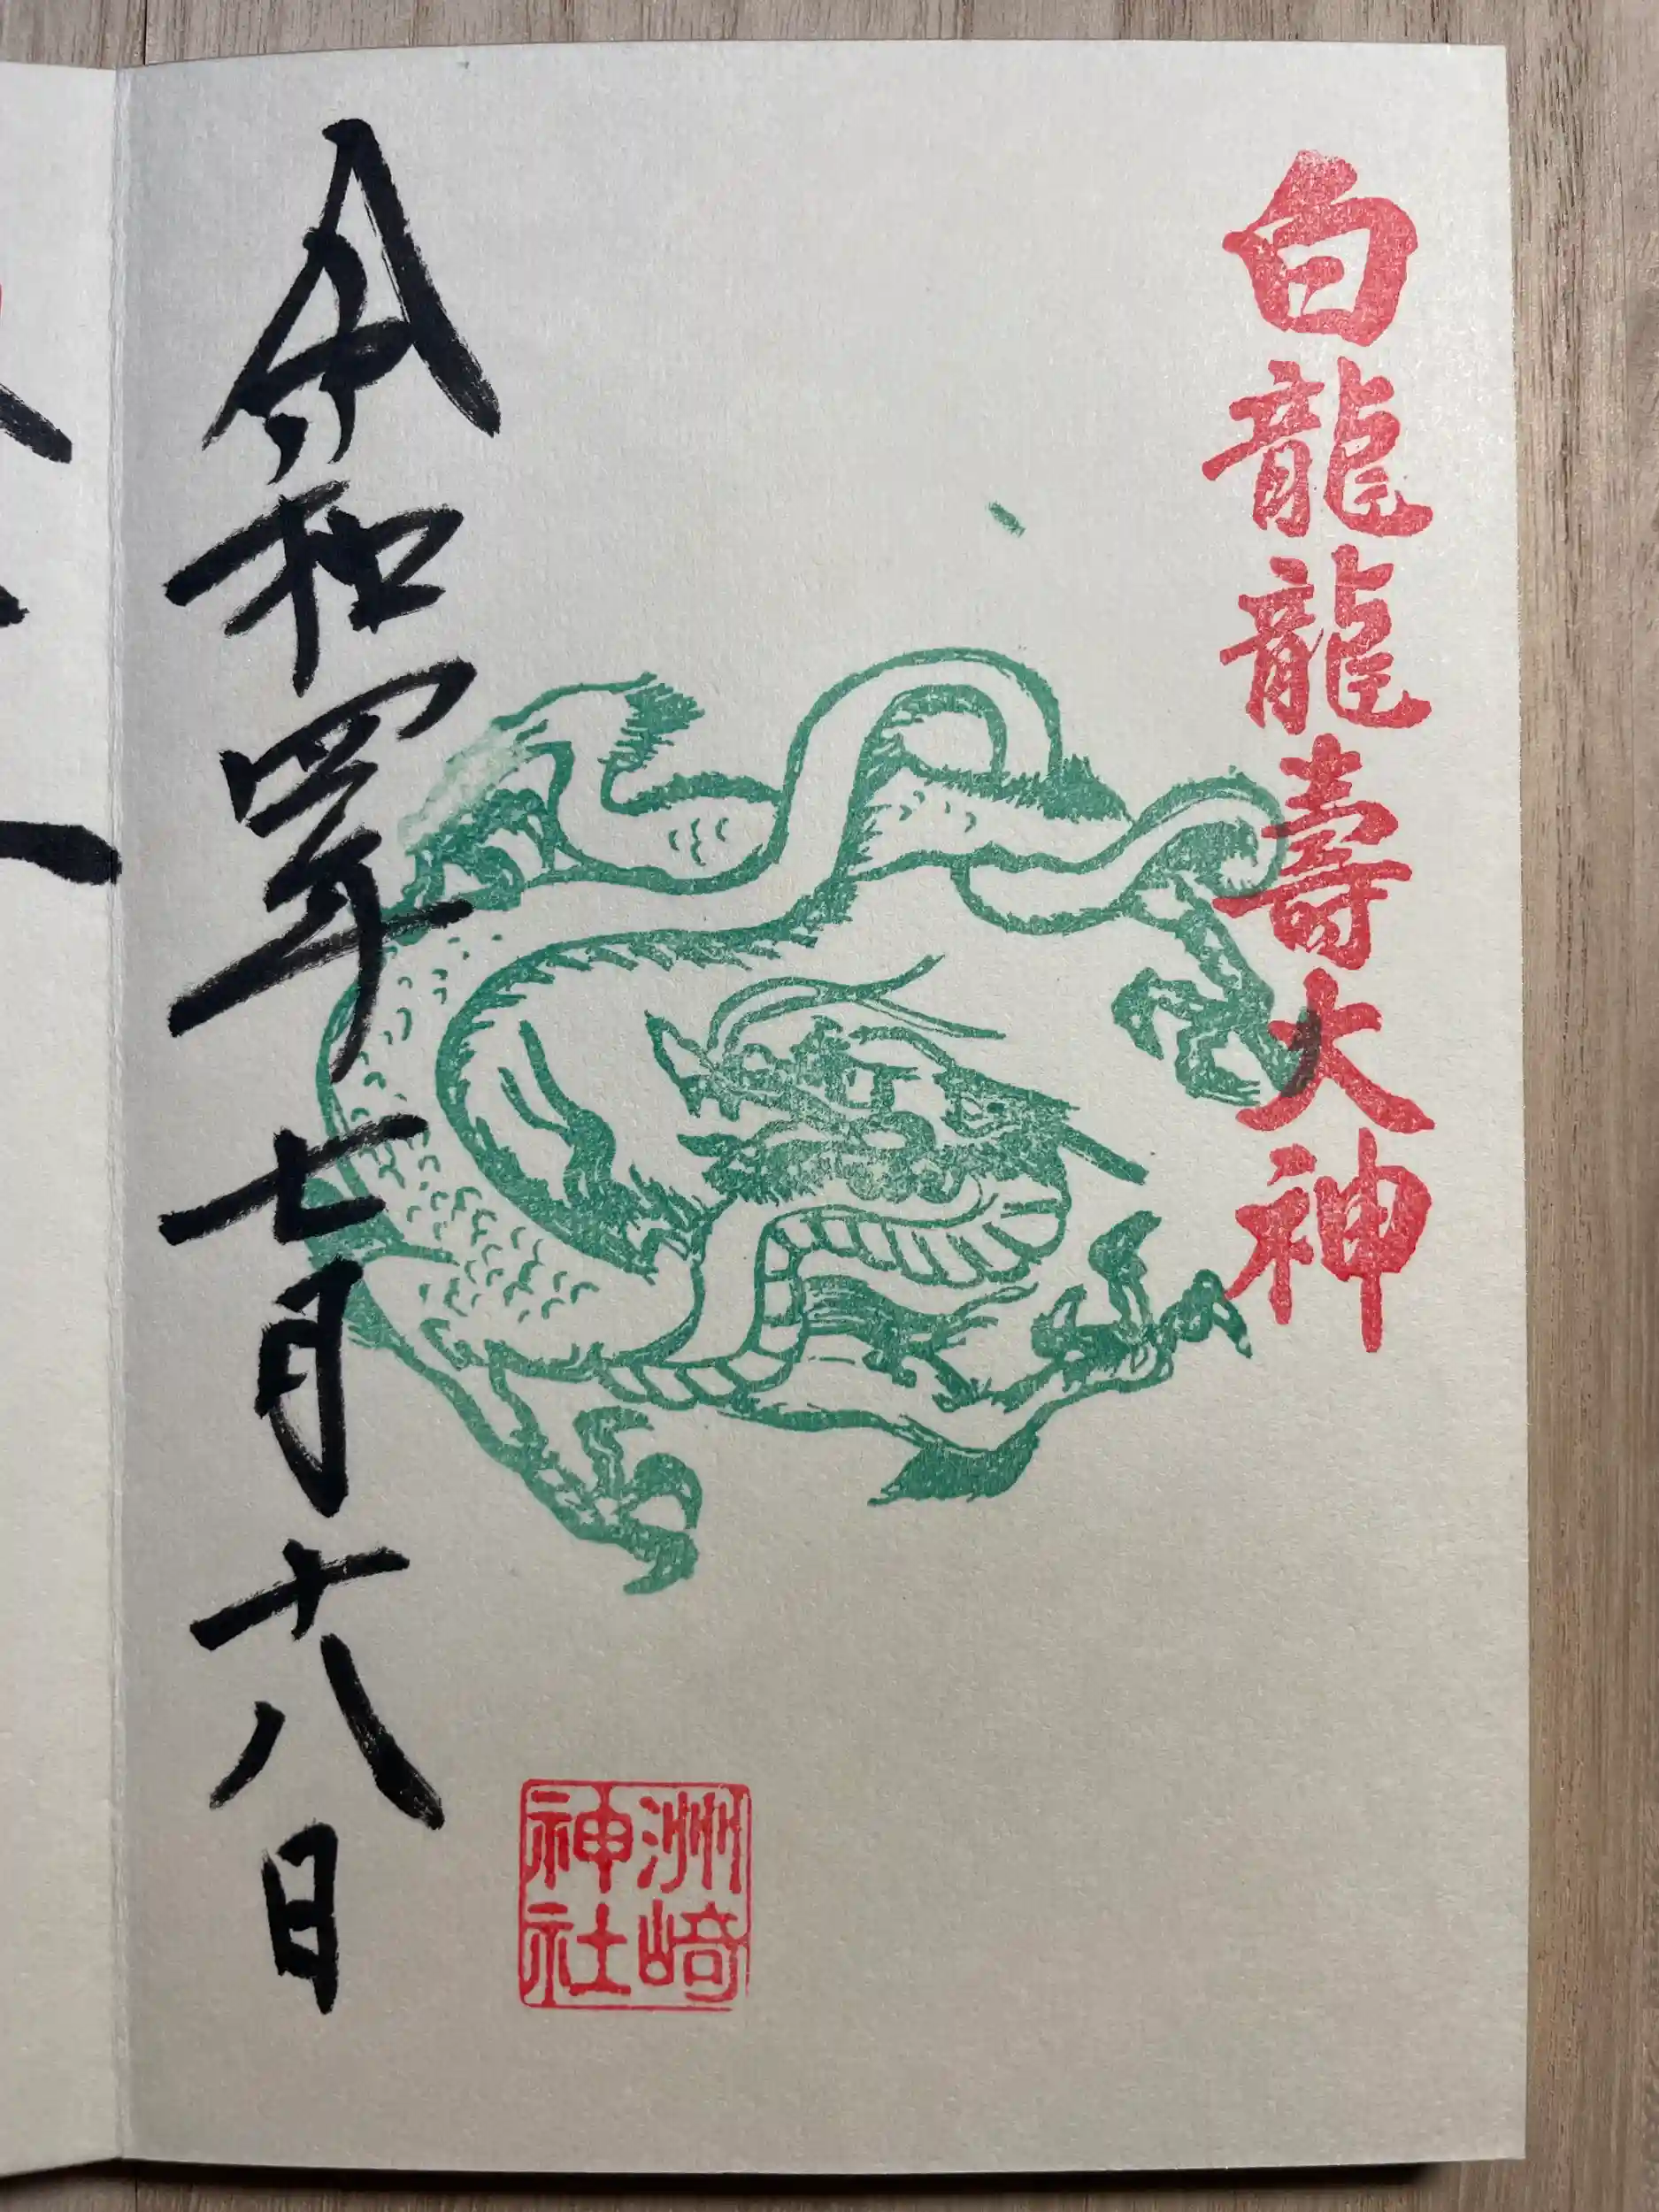 白龍龍壽大神
令和四年七月十八日
洲崎
神社